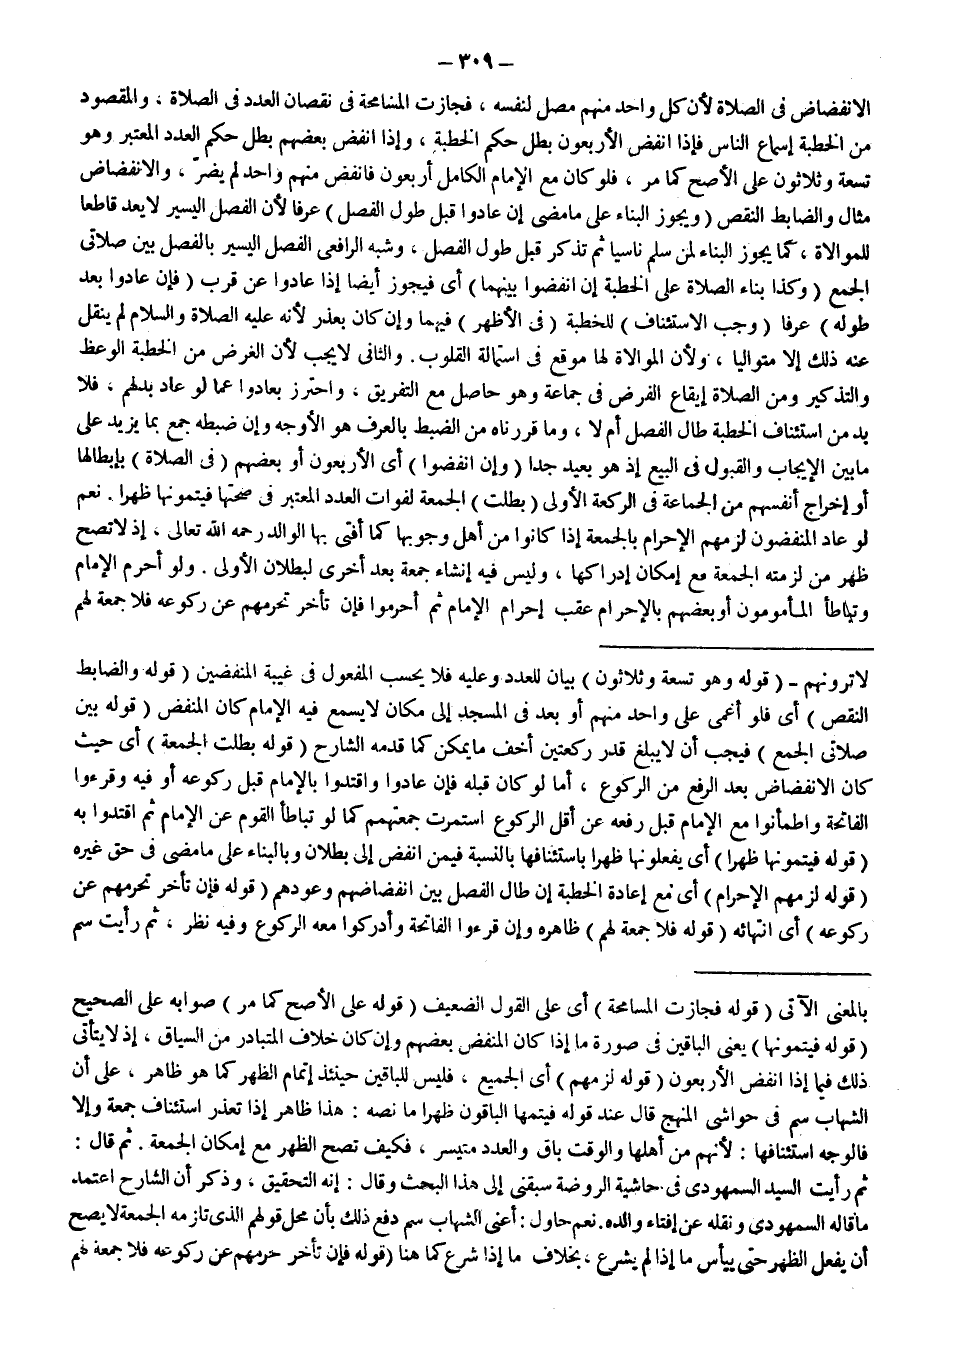 – ٣٠٩ –
الانفضاض فى الصلاة لأن كل واحد منهم مصل لنفسه ، فجازت المسامحة فى نقصان العدد فى الصلاة ، والمقصود
من الخطبة إسماع الناس فإذا انفض الأربعون بطل حكم الخطبة ، وإذا انفض بعضهم بطل حكم العدد المعتبر وهو
تسعة وثلاثون على الأصح كما مر ، فلو كان مع الإمام الكامل أربعون فانفض منهم واحد لم يضرّ ، والانفضاض
مثال والضابط النقص ( ويجوز البناء على مامضى إن عادوا قبل طول الفصل ) عرفا لأن الفصل اليسير لايعد قاطعا
للموالاة ، كما يجوز البناء لمن سلم ناسيا ثم تذكر قبل طول الفصل ، وشبه الرافعى الفصل اليسير بالفصل بين صلاتى
الجمع ( وكذا بناء الصلاة على الخطبة إن انفضوا بينهما ) أى فيجوز أيضا إذا عادوا عن قرب ( فإن عادوا بعد
طوله ) عرفا ( وجب الاستئناف ) للخطبة ( فى الأظهر ) فيهما وإن كان بعذر لأنه عليه الصلاة والسلام لم ينقل
عنه ذلك إلا متواليا ، ولأن الموالاة لها موقع فى استمالة القلوب . والثانى لايجب لأن الغرض من الخطبة الوعظ
والتذكير ومن الصلاة إيقاع الفرض فى جماعة وهو حاصل مع التفريق ، واحترز بعادوا عما لو عاد بدلهم ، فلا
بد من استئناف الخطبة طال الفصل أم لا ، وما قررناه من الضبط بالعرف هو الأوجه وإن ضبطه جمع بما يزيد على
مابين الإيجاب والقبول فى البيع إذ هو بعيد جدا ( وإن انفضوا ) أى الأربعون أو بعضهم ( فى الصلاة ) بإبطالها
أو إخراج أنفسهم من الجماعة فى الركعة الأولى ( بطلت ) الجمعة لفوات العدد المعتبر فى صحتها فيتمونها ظهرا . نعم
لو عاد المنفضون لزمهم الإحرام بالجمعة إذا كانوا من أهل وجوبها كما أفتى بها الوالد رحمه الله تعالى ، إذ لاتصح
ظهر من لزمته الجمعة مع إمكان إدراكها ، وليس فيه إنشاء جمعة بعد أخرى لبطلان الأولى . ولو أحرم الإمام
وتباطأ المأمومون أو بعضهم بالإحرام عقب إحرام الإمام ثم أحرموا فإن تأخر تحرمهم عن ركوعه فلا جمعة لهم
لاترونهم – ( قوله وهو تسعة وثلاثون ) بيان للعدد وعليه فلا يحسب المفعول فى غيبة المنفضين ( قوله والضابط
النقص ) أى فلو أغمى على واحد منهم أو بعد فى المسجد إلى مكان لايسمع فيه الإمام كان المنفض ( قوله بين
صلاتى الجمع ) فيجب أن لايبلغ قدر ركعتين أخف مايمكن كما قدمه الشارح ( قوله بطلت الجمعة ) أى حيث
كان الانفضاض بعد الرفع من الركوع ، أما لو كان قبله فإن عادوا واقتدوا بالإمام قبل ركوعه أو فيه وقرءوا
الفاتحة واطمأنوا مع الإمام قبل رفعه عن أقل الركوع استمرت جمعتهم كما لو تباطأ القوم عن الإمام ثم اقتدوا به
( قوله فيتمونها ظهرا ) أى يفعلونها ظهرا باستئنافها بالنسبة فيمن انفض إلى بطلان وبالبناء على مامضى فى حق غيره
( قوله لزمهم الإحرام ) أى مع إعادة الخطبة إن طال الفصل بين انفضاضهم وعودهم ( قوله فإن تأخر تحرمهم عن
ركوعه ) أى انتهائه ( قوله فلا جمعة لهم ) ظاهره وإن قرءوا الفاتحة وأدركوا معه الركوع وفيه نظر ، ثم رأيت سم
بالمعنى الآتى ( قوله فجازت المسامحة ) أى على القول الضعيف ( قوله على الأصح كما مر ) صوابه على الصحيح
( قوله فيتمونها ) يعنى الباقين فى صورة ما إذا كان المنفض بعضهم وإن كان خلاف المتبادر من السياق ، إذ لايتأتى
ذلك فيما إذا انفض الأربعون ( قوله لزمهم ) أى الجميع ، فليس للباقين حينئذ إتمام الظهر كما هو ظاهر ، على أن
الشهاب سم فى حواشى المنهج قال عند قوله فيتمها الباقون ظهرا ما نصه : هذا ظاهر إذا تعذر استئناف جمعة وإلا
فالوجه استئنافها : لأنهم من أهلها والوقت باق والعدد متيسر ، فكيف تصح الظهر مع إمكان الجمعة . ثم قال :
ثم رأيت السيد السمهودى فى حاشية الروضة سبقنى إلى هذا البحث وقال : إنه التحقيق ، وذكر أن الشارح اعتمد
ماقاله السمهودى ونقله عن إفتاء والده . نعم حاول : أعنى الشهاب سم دفع ذلك بأن محل قولهم الذى تلزمه الجمعة لايصح
أن يفعل الظهر حتى ييأس ما إذا لم يشرع ، بخلاف ما إذا شرع كما هنا ( قوله فإن تأخر حرمهم عن ركوعه فلا جمعة لهم